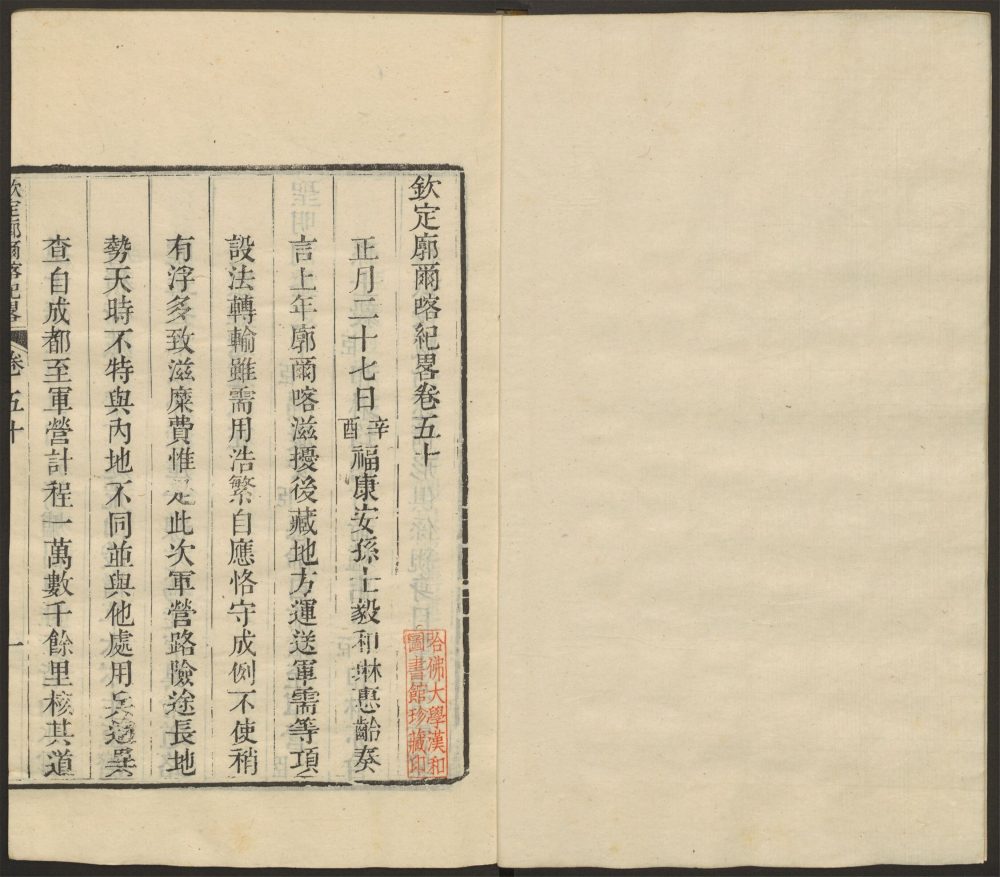 欽定廓爾喀紀畧卷五十
正月二十七日辛酉福康安孫士毅和琳惠齡奏
言上年廓爾喀滋擾後藏地方運送軍需等項
設法轉輸雖需用浩繁自應恪守成例不使稍
有浮多致滋糜費惟是此次軍營路險途長地
勢天時不特與內地不同並與他處用兵逈異
查自成都至軍營計程一萬數千餘里核其道
欽定廓爾喀紀畧
卷五十
一
哈佛大學漢和
圖書館珍藏印